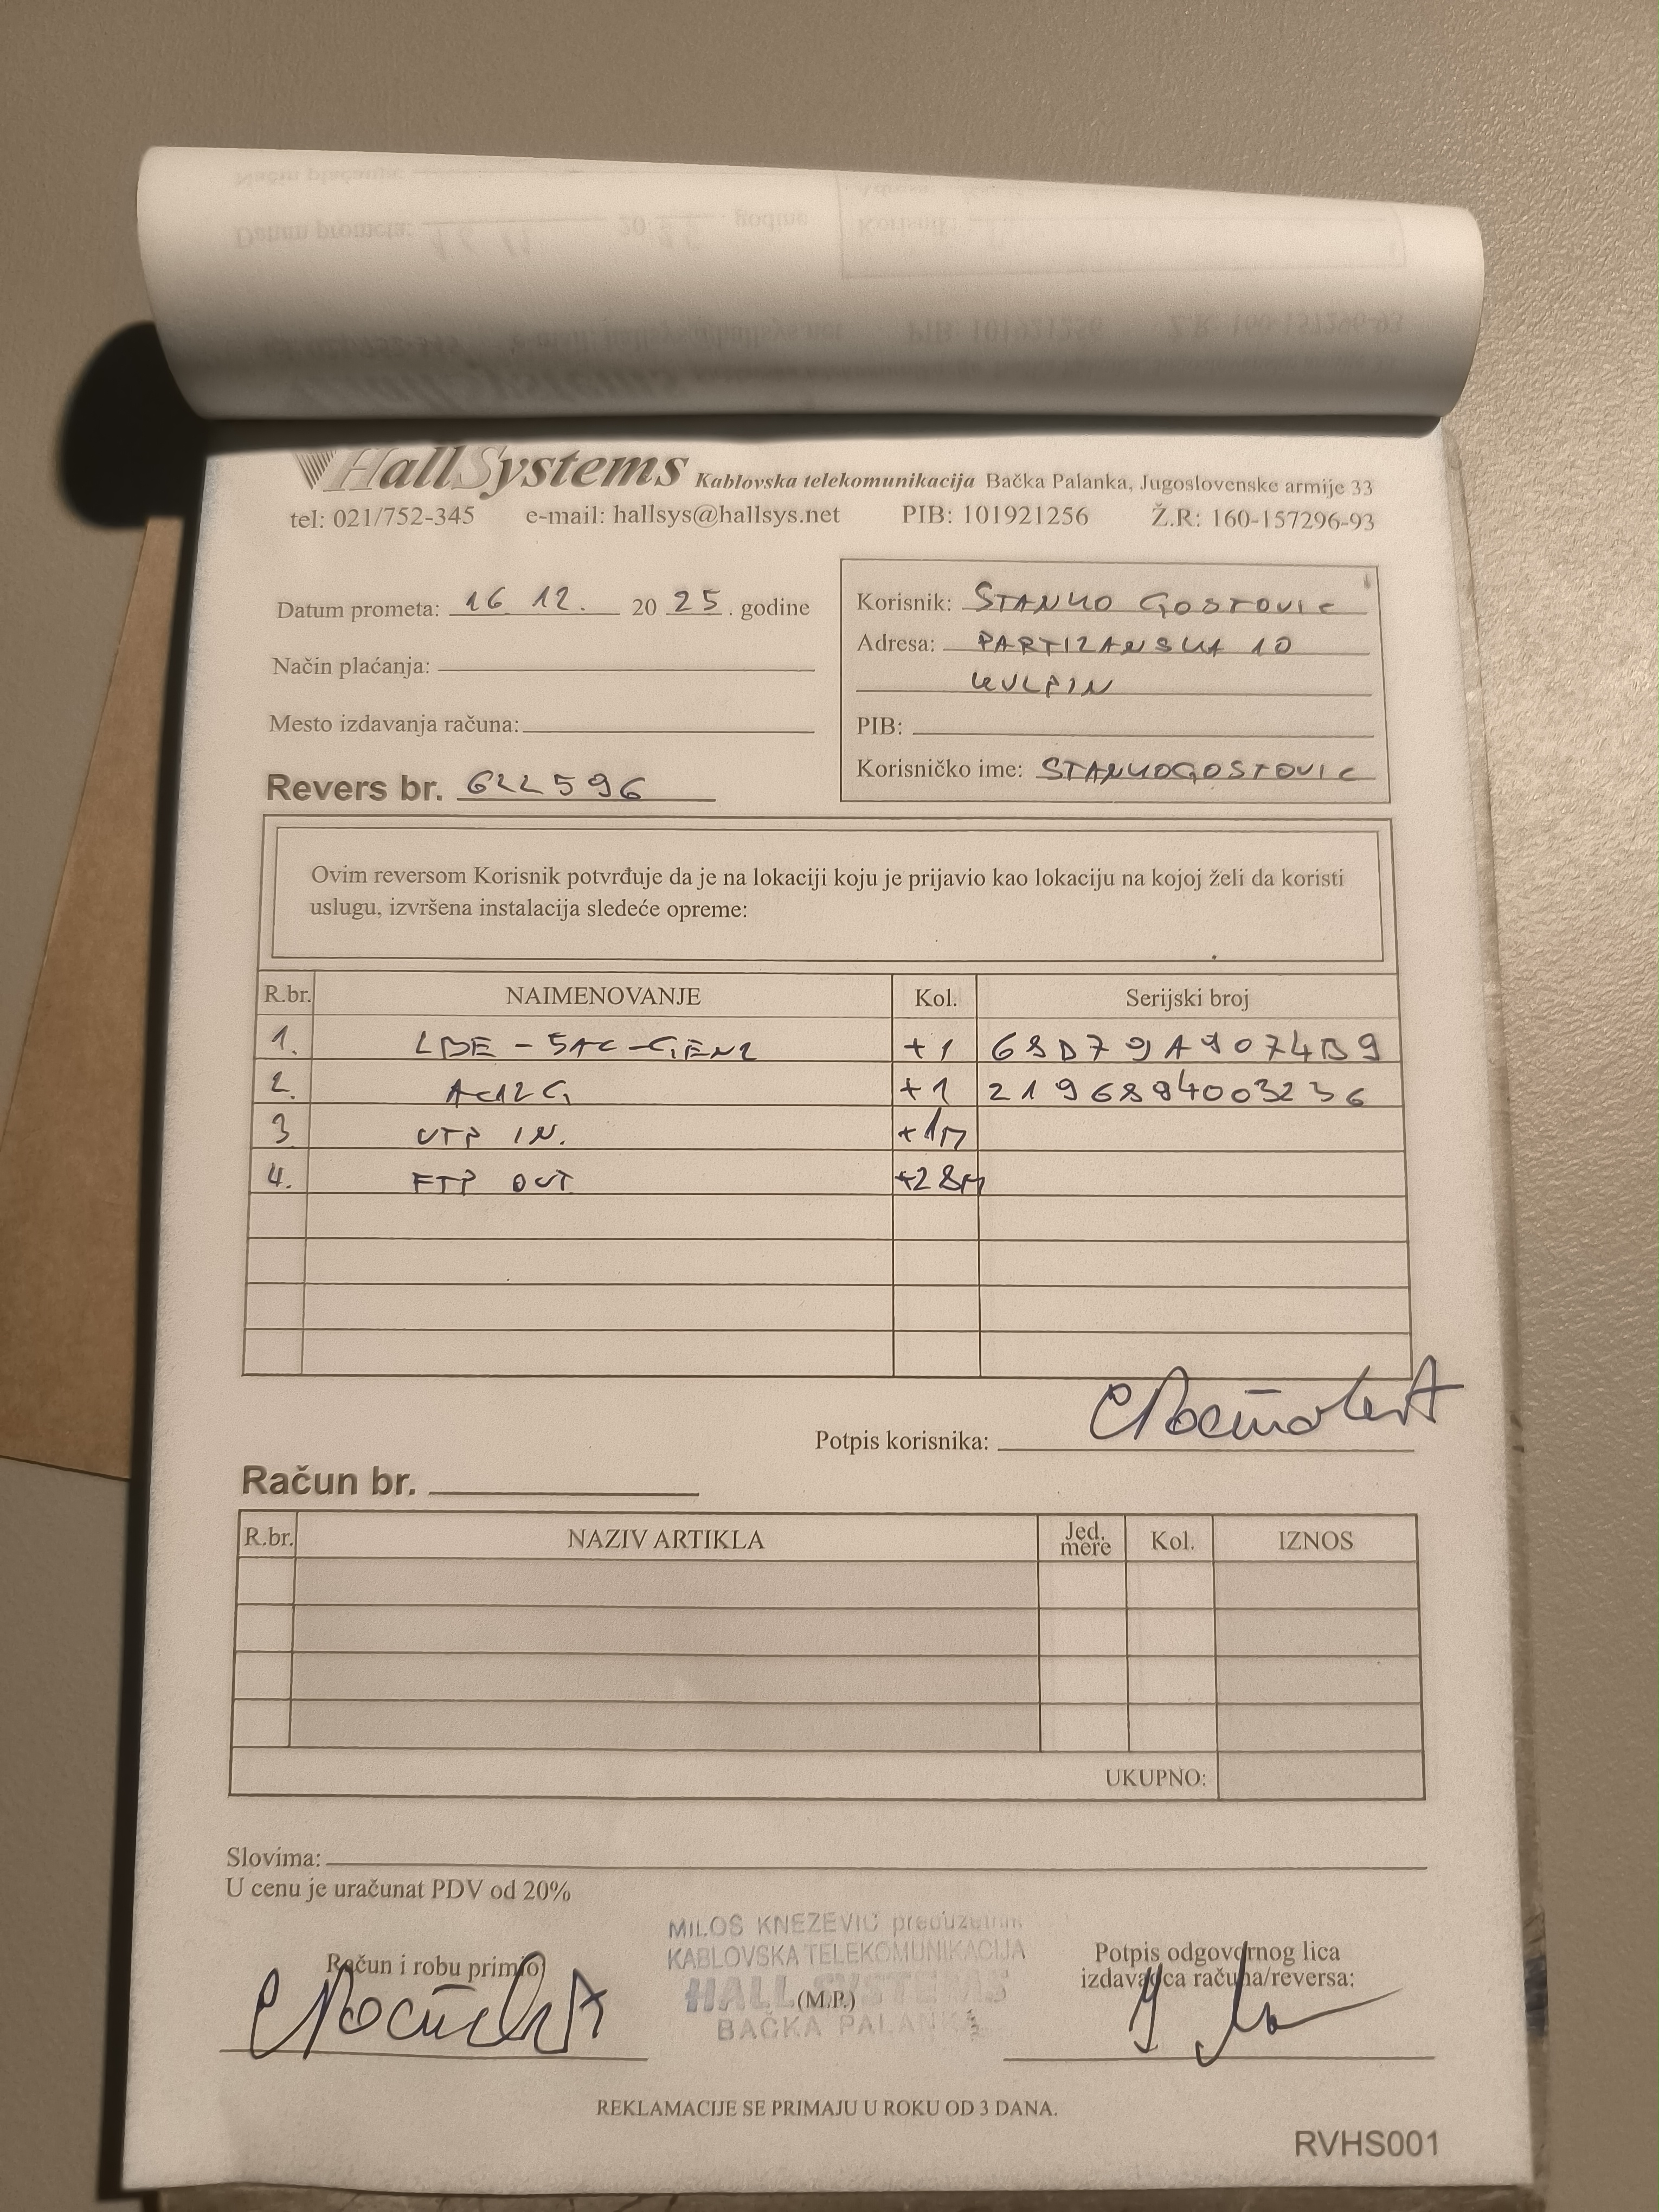 HallSystems Kablovska telekomunikacija Bačka Palanka, Jugoslovenske armije 33
tel: 021/752-345 e-mail: hallsys@hallsys.net PIB: 101921256 Ž.R: 160-157296-93
Datum prometa: 16 12. 20 25. godine
Način plaćanja:
Mesto izdavanja računa:
Revers br. 622596
Korisnik: STANKO GOSTOVIC
Adresa: PARTIZANSKA 10
KULPIN
PIB:
Korisničko ime: STANKOGOSTOVIC
Ovim reversom Korisnik potvrđuje da je na lokaciji koju je prijavio kao lokaciju na kojoj želi da koristi
uslugu, izvršena instalacija sledeće opreme:
R.br. NAIMENOVANJE Kol. Serijski broj
1. LBE-5AC-GEN2 +1 68D79A9074B9
2. AC12G +1 2196894003236
3 UTP IN. +1M
4. FTP OUT +28M
Potpis korisnika:
Račun br.
R.br. NAZIV ARTIKLA Jed. mere Kol. IZNOS
UKUPNO:
Slovima:
U cenu je uračunat PDV od 20%
Račun i robu primio
MILOS KNEZEVIC preduzetnik
KABLOVSKA TELEKOMUNIKACIJA
HALL SYSTEMS
(M.P.)
BAČKA PALANKA
Potpis odgovornog lica
izdavaoca računa/reversa:
REKLAMACIJE SE PRIMAJU U ROKU OD 3 DANA.
RVHS001